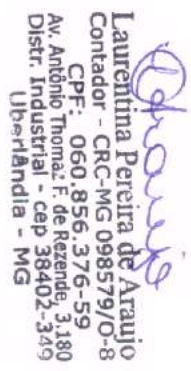 Laurentina Pereira de Araujo
Contador - CRC-MG 098579/O-8
CPF: 060.856.376-59
Av. Antônio Thomaz F. de Rezende, 3.180
Distr. Industrial - cep 38402-349
Uberlândia - MG